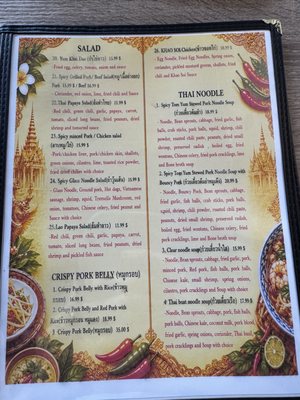 SALAD
20. Yum Khai Dao (ยำไข่ดาว) 15.99 $
- Fried egg, celery, tomato, onion and sauce
21. Spicy Grilled Pork/ Beef Salad
Pork 15.99 $ / Beef 16.99 $
- Coriander, and onion, lime, fried chili and Sauce
22. Thai Papaya Salad (ส้มตำไทย) 15.99 $
-Red chili, green chili, garlic, papaya, carrot,
tomato, sliced long beans, fried peanuts, dried
shrimp and tamarind sauce
23. Spicy minced Pork / Chicken salad
(ลาบหมู/ไก่) 15.99 $
-Pork/chicken liver, pork/chicken skin, shallots,
green onions, cilantro, lime, toasted rice powder,
fried dried chilies with choice
24. Spicy Glass Noodle Salad
- Glass Noodle, Ground pork, Hot dogs, Vietnamese
sausage, shrimp, squid, Tremella Mushroom, red
onion, tomatoes, Chinese celery, fried peanut and
Sauce with choice
25. Lao Papaya Salad (ส้มตำลาว) 15.99 $
-Red chili, green chili, garlic, papaya, carrot,
tomato, sliced long beans, fried peanuts, dried
shrimp and pickled fish sauce
CRISPY PORK BELLY (หมูกรอบ)
1. Crispy Pork Belly with Rice
16.99 $
2. Crispy Pork Belly and Red Pork with
Rice 18.99 $
3. Crispy Pork Belly(หมูกรอบ) 35.00 $
26. KHAO SOI Chicken(ข้าวซอยไก่) 18.99 $
- Egg Noodle, Fried Egg Noodles, Spring onion,
coriander, pickled mustard greens, shallots, fried
chili and Khao Soi Sauce
THAI NOODLE
1. Spicy Tom Yum Stewed Pork Noodle Soup
18.99 $
- Noodle, Bean sprouts, cabbage, fried garlic, fish
balls, crab sticks, pork balls, squid, shrimp, chili
powder, roasted chili paste, peanuts, dried small
shrimp, preserved radish , boiled egg , fried
wontons, Chinese celery, fried pork cracklings, lime
and Bone broth soup
2. Spicy Tom Yum Stewed Pork Noodle Soup with
Bouncy Pork 18.99 $
- Noodle, Bouncy Pork, Bean sprouts, cabbage,
fried garlic, fish balls, crab sticks, pork balls,
squid, shrimp, chili powder, roasted chili paste,
peanuts, dried small shrimp, preserved radish,
boiled egg, fried wontons, Chinese celery, fried
pork cracklings, lime and Bone broth soup
3. Clear noodle soup 15.99 $
-Noodle, Bean sprouts, cabbage, fried garlic, pork,
minced pork, Red pork, fish balls, pork balls,
Chinese kale, small shrimp, spring onions,
cilantro, pork cracklings and Soup with choice
4. Thai boat noodle soup(ก๋วยเตี๋ยวเรือ) 17.99 $
-Noodle, Bean sprouts, beef, pork, fish balls, pork
balls, Chinese kale, coconut milk, pork blood,
fried garlic, spring onions, coriander, Thai basil,
pork cracklings and Soup with choice